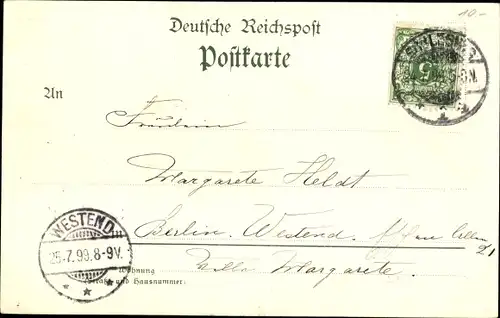 10.-
Deutsche Reichspost
Postkarte
An
Fräulein
Margarete Heldt
Berlin. Westend.
Villa Margarete.
WESTEND
25.7.99.8-9V.
Wohnung
und Hausnummer:
5